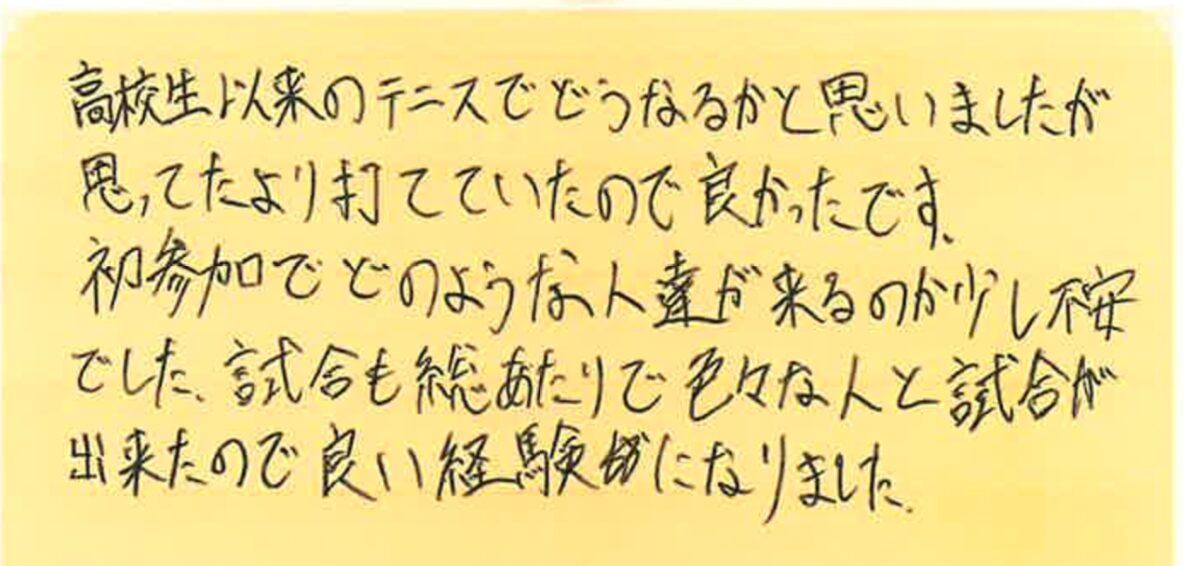 高校生以来のテニスでどうなるかと思いましたが
思ってたより打てていたので良かったです。
初参加でどのような人達が来るのか少し不安
でした。試合も総あたりで色々な人と試合が
出来たので良い経験になりました。